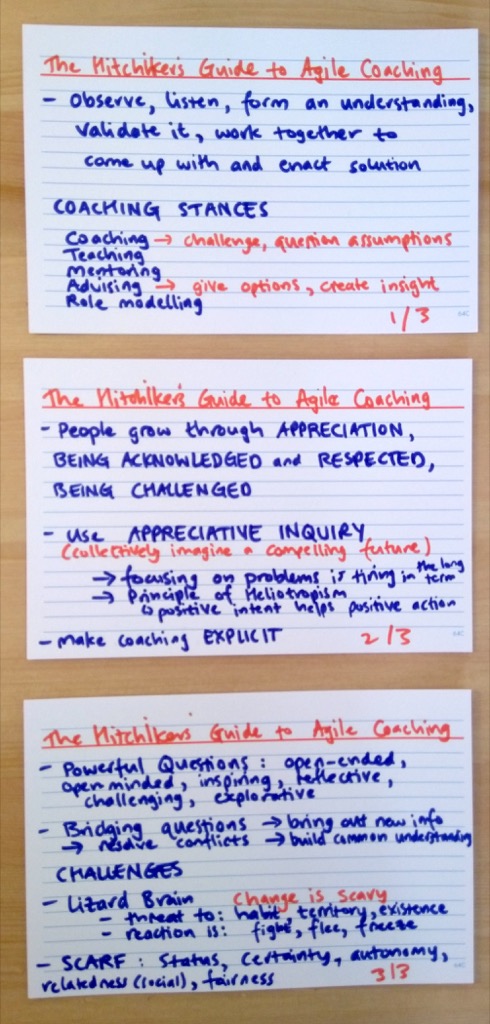 The Hitchiker's Guide to Agile Coaching
- Observe, listen, form an understanding,
validate it, work together to
come up with and enact solution
COACHING STANCES
Coaching → challenge, question assumptions
Teaching
Mentoring
Advising → give options, create insight
Role modelling
1/3
The Hitchiker's Guide to Agile Coaching
- People grow through APPRECIATION,
BEING ACKNOWLEDGED and RESPECTED,
BEING CHALLENGED
- Use APPRECIATIVE INQUIRY
(collectively imagine a compelling future)
→ focusing on problems is tiring in the long term
→ Principle of Heliotropism
↳ positive intent helps positive action
- Make coaching EXPLICIT
2/3
The Hitchikers Guide to Agile Coaching
- Powerful Questions: open-ended,
open minded, inspiring, reflective,
challenging, explorative
- Bridging questions → bring out new info
→ resolve conflicts → build common understanding
CHALLENGES
- Lizard Brain Change is scary
- threat to: habit, territory, existence
- reaction is: fight, flee, freeze
- SCARF: Status, Certainty, autonomy,
relatedness (social), fairness
3/3